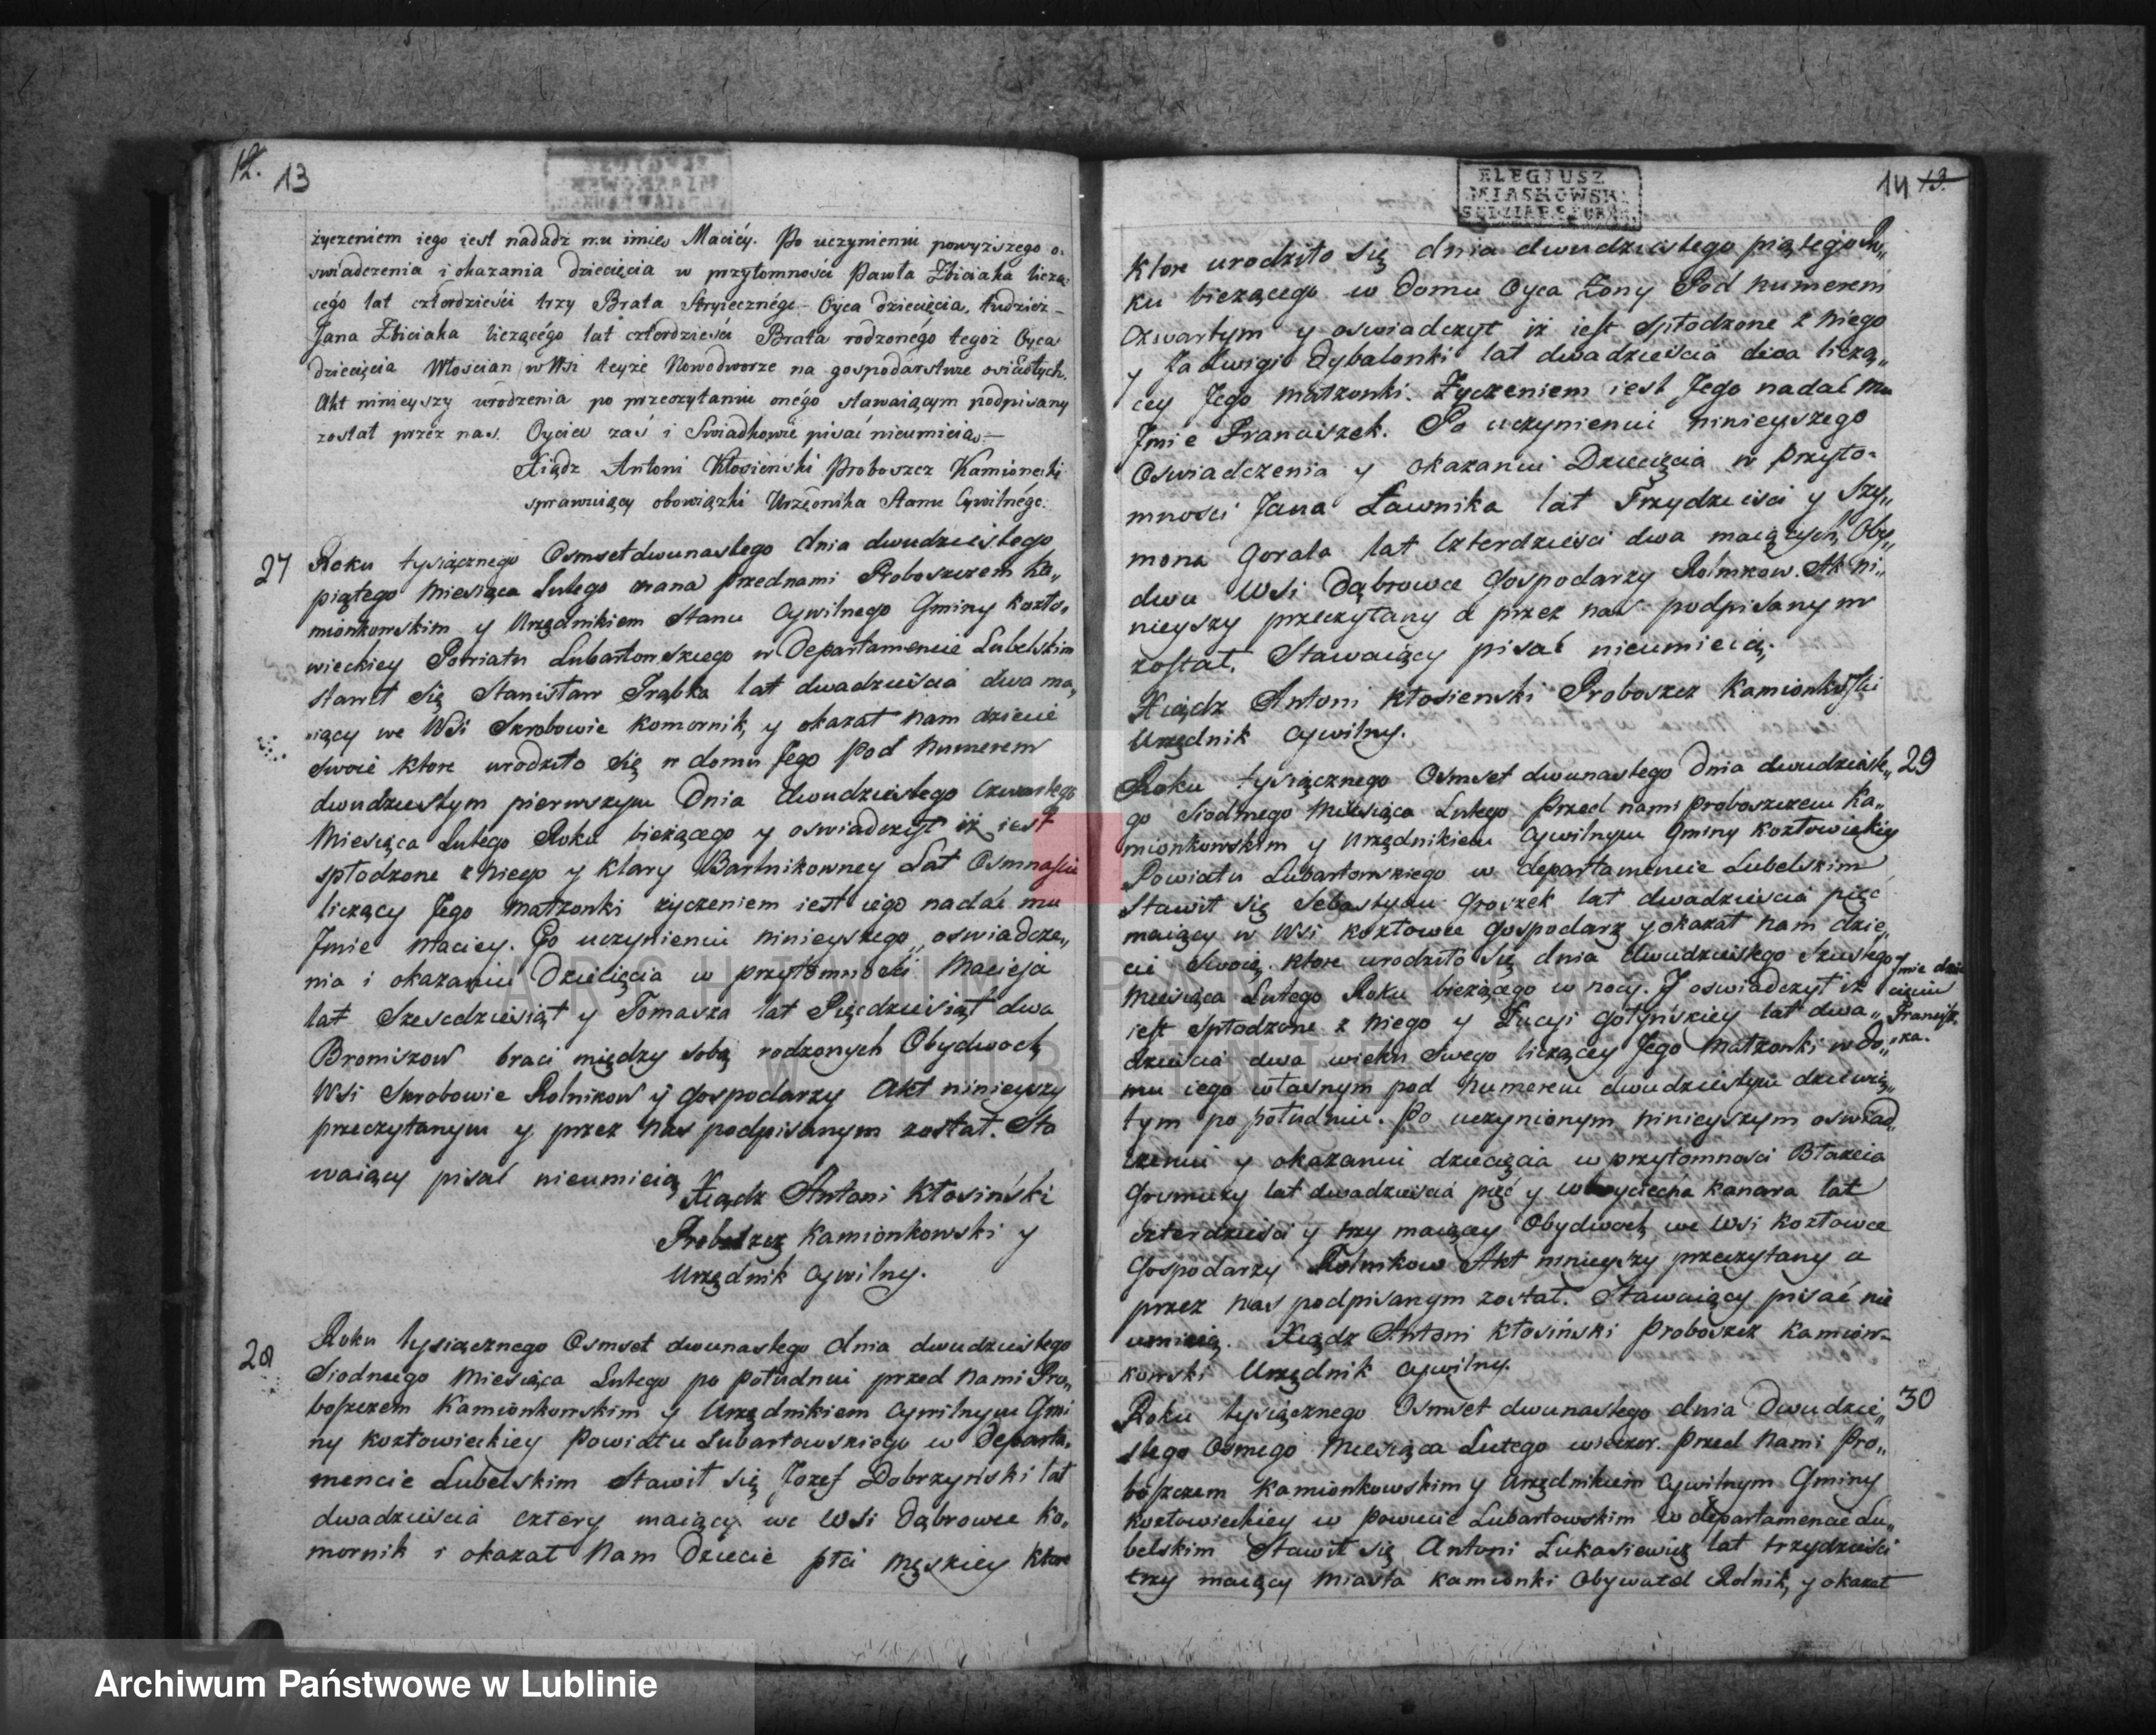 12. 13
życzeniem iego iest nadadz mu imie Maciéy. Po uczynieniu powyższego o-
swiadczenia i okazania dziecięcia w przytomności Pawła Zbiciaka liczą-
cego lat czterdzieści trzy Brata Stryiecznégo Oyca dziecięcia, tudzież
Jana Zbiciaka liczącégo lat czterdzieści Brata rodzonégo tegoż Oyca
dziecięcia Włościan w Wsi teyże Nowodworze na gospodarstwie osiadłych.
Akt ninieyszy urodzenia po przeczytaniu onégo stawaiącym podpisany
został przez nas. Oyciec zaś i Swiadkowie pisać nieumieią.
Xiądz Antoni Kłosieński Proboszcz Kamionecki
sprawuiący obowiązki Urzędnika Stanu Cywilnégo.
27
Roku tysiącznego Osmset dwunastego dnia dwudziestego
piątego Miesiąca Lutego zrana przednami Proboszczem Ka„
mionkowskim y Urzędnikiem Stanu Cywilnego Gminy Kozło„
wieckiey Powiatu Lubartowskiego w Departamencie Lubelskim
stawił Się Stanisław Trąbka lat dwadzieścia dwa ma„
iący we Wsi Skrobowie Komornik, y okazał nam dziecie
swoie Ktore urodziło się w domu Jego Pod Numerem
dwudziestym pierwszym Dnia dwudziestego czwartego
Miesiąca Lutego Roku bieżącego y oswiadczył iż iest
spłodzone z Niego y Klary Bartnikowney Lat Osmnaście
liczący Jego Małżonki życzeniem iest iego nadać mu
Jmie Maciey. Po uczynieniu ninieyszego oswiadcze„
nia i okazaniu Dziecięcia w przytomności Macieja
lat Szescdziesiąt y Tomasza lat Pięcdziesiąt dwa
Bromiszow braci między sobą rodzonych Obydwoch
Wsi Skrobowie Rolnikow y gospodarzy Akt ninieyszy
przeczytanym y przez Nas podpisanym został. Sta
waiący pisać nieumieią
Xiądz Antoni Kłosiński
Proboszcz Kamionkowski y
Urzędnik Cywilny.
28
Roku tysiącznego Osmset dwunastego dnia dwudziestego
Siodmego Miesiąca Lutego po Południu przed Nami Pro„
boszczem Kamionkowskim y Urzędnikiem Cywilnym Gmi
ny Kozłowieckiey Powiatu Lubartowskiego w Departa„
mencie Lubelskim Stawił się Jozef Dobrzyński lat
dwadzieścia cztery maiący we Wsi Dąbrowce Ko„
mornik i okazał Nam Dziecie płci Męskiey Ktore
ELEGIUSZ
MIASKOWSKI
SĘDZIA
14 13.
Ktore urodziło się dnia dwudziestego piątego Ro„
ku bieżącego w Domu Oyca Żony Pod Numerem
Czwartym y oswiadczył iż iest Spłodzone z Niego
y Jadwigi Dybalonki lat dwadzieścia dwa liczą„
cey Jego Małżonki. Życzeniem iest Jego nadać Mu
Jmie Franciszek. Po uczynieniu ninieyszego
Oswiadczenia y okazaniu Dziecięcia w Przyto-
mności Jana Ławnika lat Trzydzieści y Szy„
mona Gorala lat Czterdzieści dwa maiących Oby„
dwu Wsi Dąbrowce Gospodarzy Rolnikow. Akt ni„
nieyszy przeczytany a przez nas podpisanym
został. Stawaiący pisać nieumieią.
Xiądz Antoni Kłosienski Proboszcz Kamionkowski
Urzędnik Cywilny.
29
Roku tysiącznego Osmset dwunastego Dnia dwudzieste„
go Siodmego Miesiąca Lutego Przed nami Proboszczem Ka„
mionkowskim y Urzędnikiem Cywilnym Gminy Kozłowieckiey
Powiatu Lubartowskiego w departamencie Lubelskim
Stawił się Sebastyan Groszek lat dwadzieścia pięć
maiący w Wsi Kozłowce Gospodarz y okazał nam dzie„
cie Swoie. Ktore urodziło Się dnia dwudziestego Szustego
Miesiąca Lutego Roku bieżącego w nocy. Y oswiadczył iż
iest Spłodzone z Niego y Łucyi Gołyńskiey lat dwa„
dzieścia dwa wieku Swego liczącey Jego Małżonki w Do„
mu iego własnym pod Numerem dwudziestym dziewią„
tym po południu. Po uczynionym ninieyszym oswiad„
czeniu y okazaniu dziecięcia w przytomności Błażeia
lat dwadzieścia pięć y Woyciecha Kanara lat
czterdzieści y trzy maiący Obydwoch we Wsi Kozłowce
Gospodarzy Rolnikow Akt ninieyszy przeczytany a
przez Nas podpisanym został. Stawaiący pisać nie
umieią. Xiądz Antoni Kłosiński Proboszcz Kamion-
kowski Urzędnik Cywilny.
Jmie dzie
cięciu
Francisz„
ka.
30
Roku tysiącznego Osmset dwunastego dnia Dwudzie„
stego Osmego Miesiąca Lutego wieczor. Przed Nami Pro„
boszczem Kamionkowskim y Urzędnikiem Cywilnym Gminy
Kozłowieckiey w Powiecie Lubartowskim w departamencie Lu„
belskim Stawił się Antoni Łukasiewicz lat trzydzieści
trzy maiący Miasta Kamionki Obywatel Rolnik, y okazał
ARCHIWUM PAŃSTWOWE
W LUBLINIE
Archiwum Państwowe w Lublinie